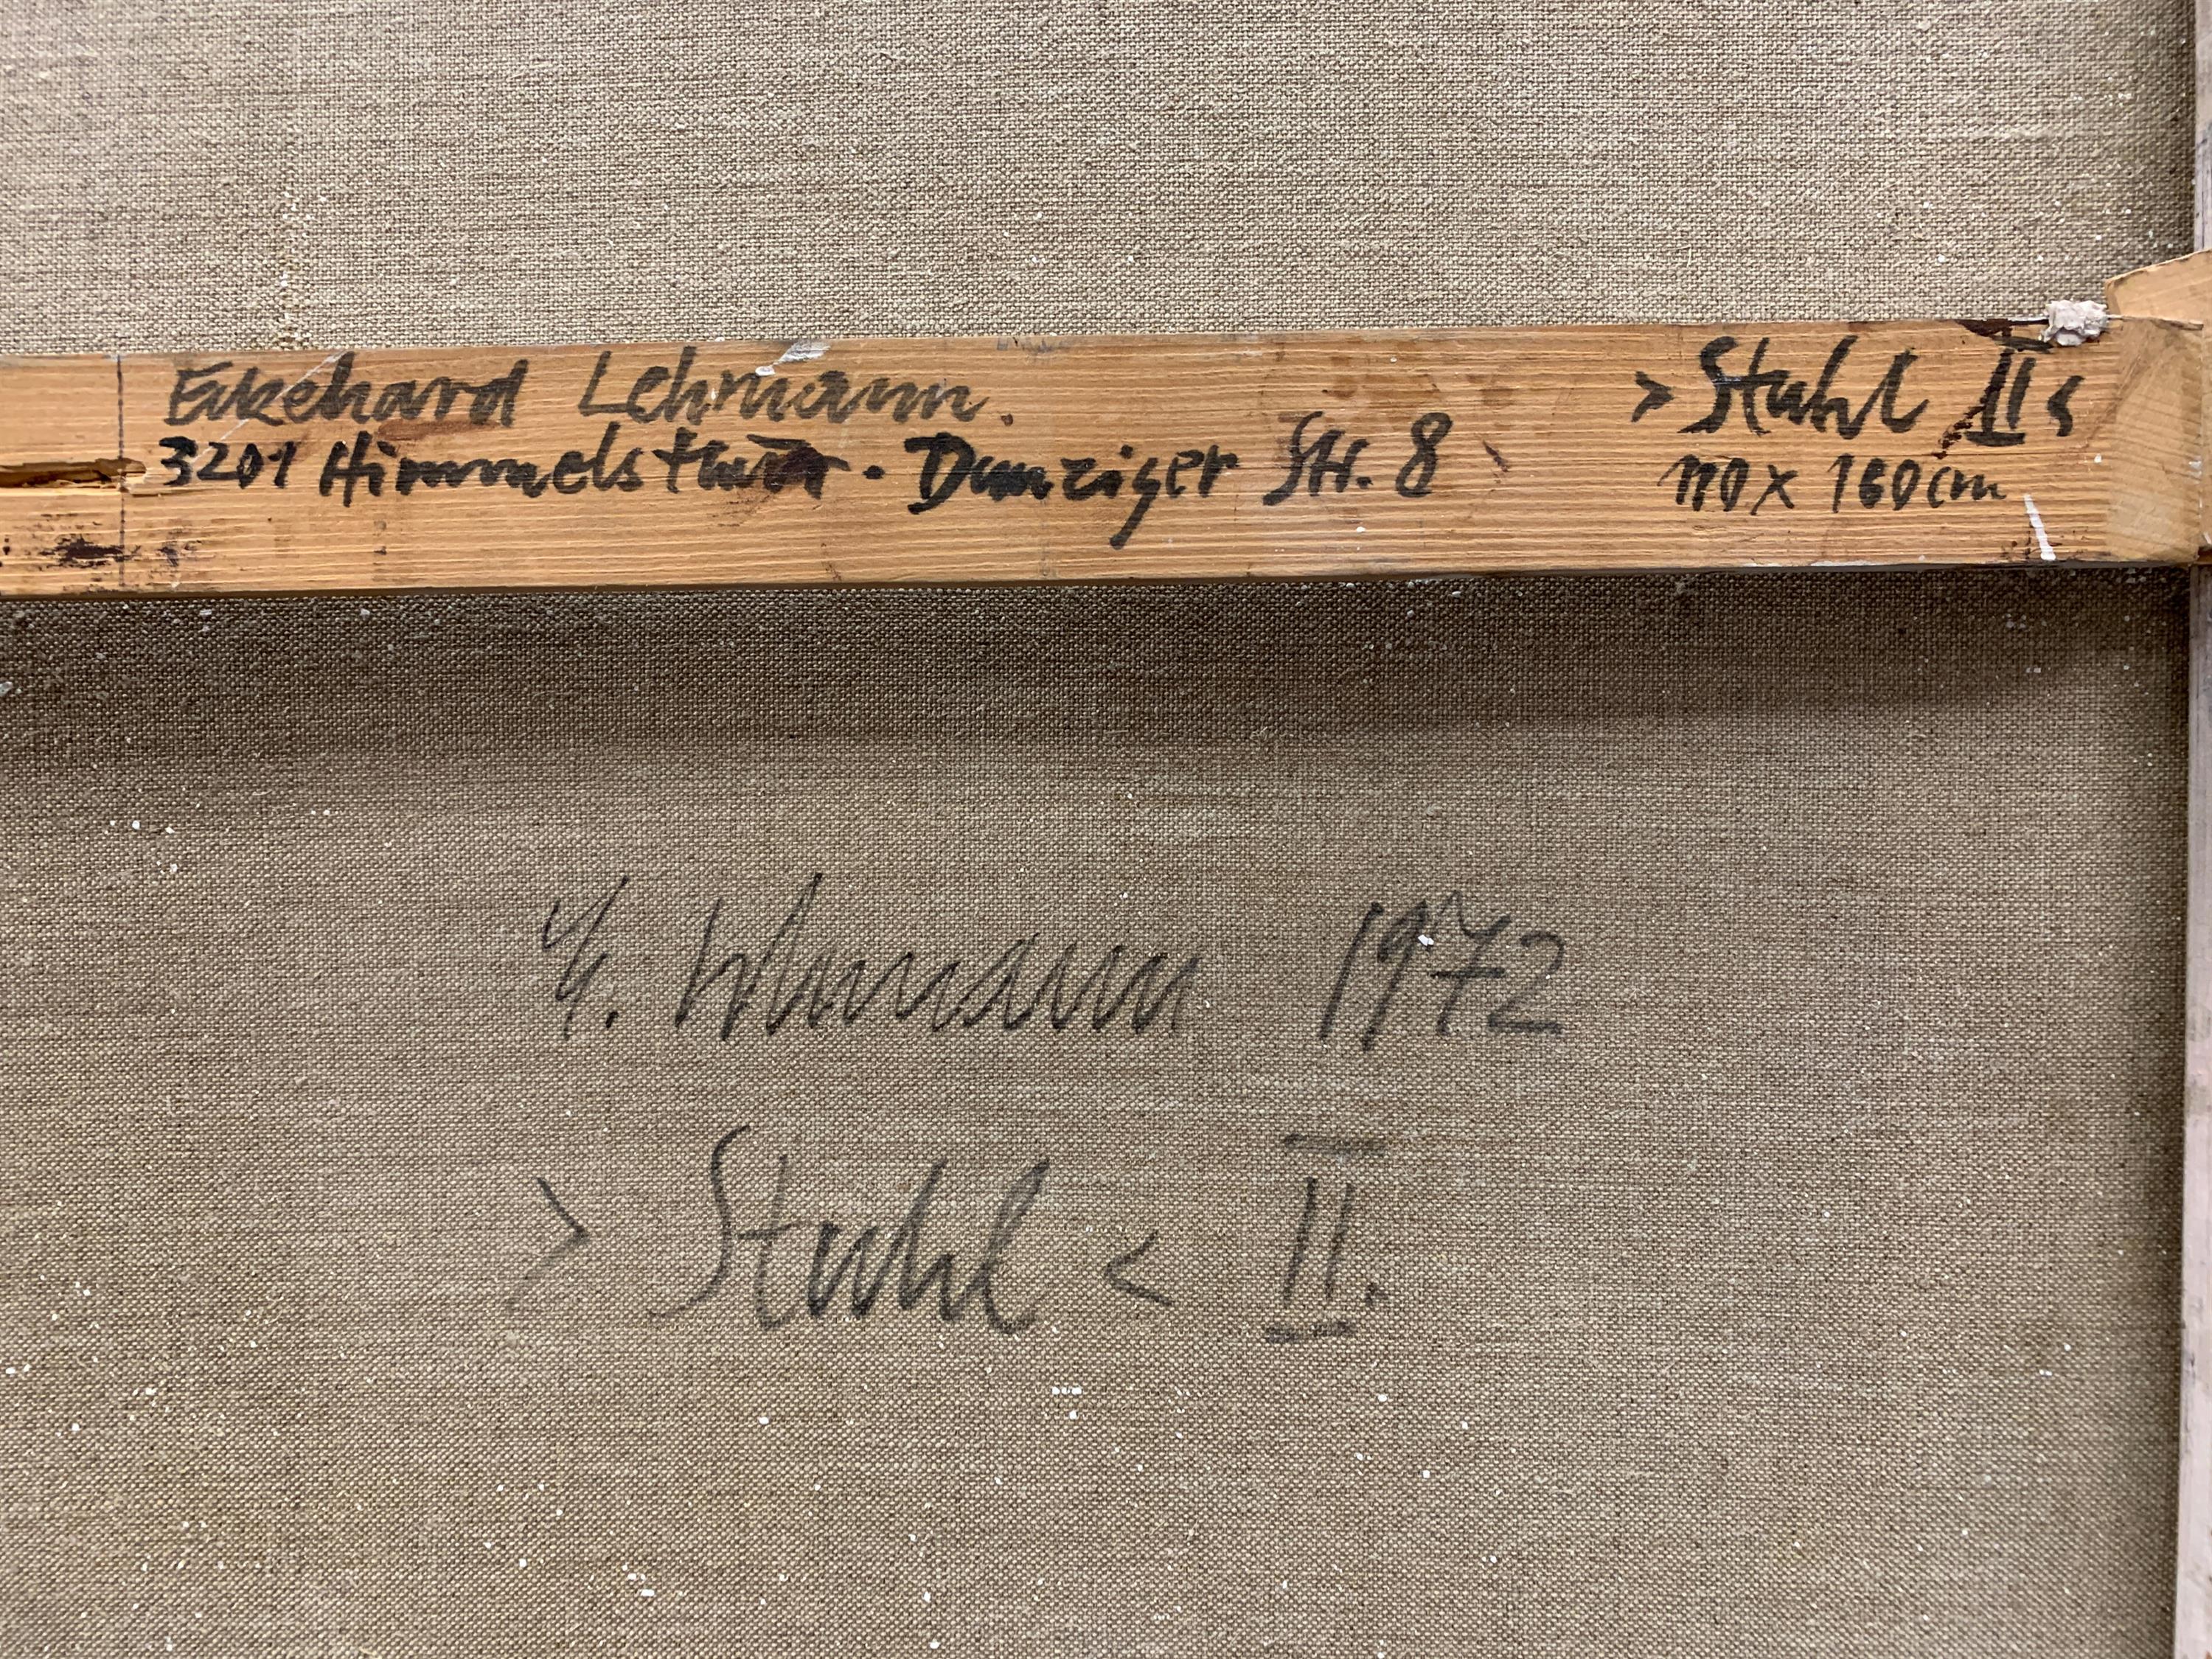 Ekkehard Lehmann.
> Stuhl II <
3201 Himmelsthür. Danziger Str. 8
110 x 160 cm
E. Lehmann 1972
> Stuhl < II.